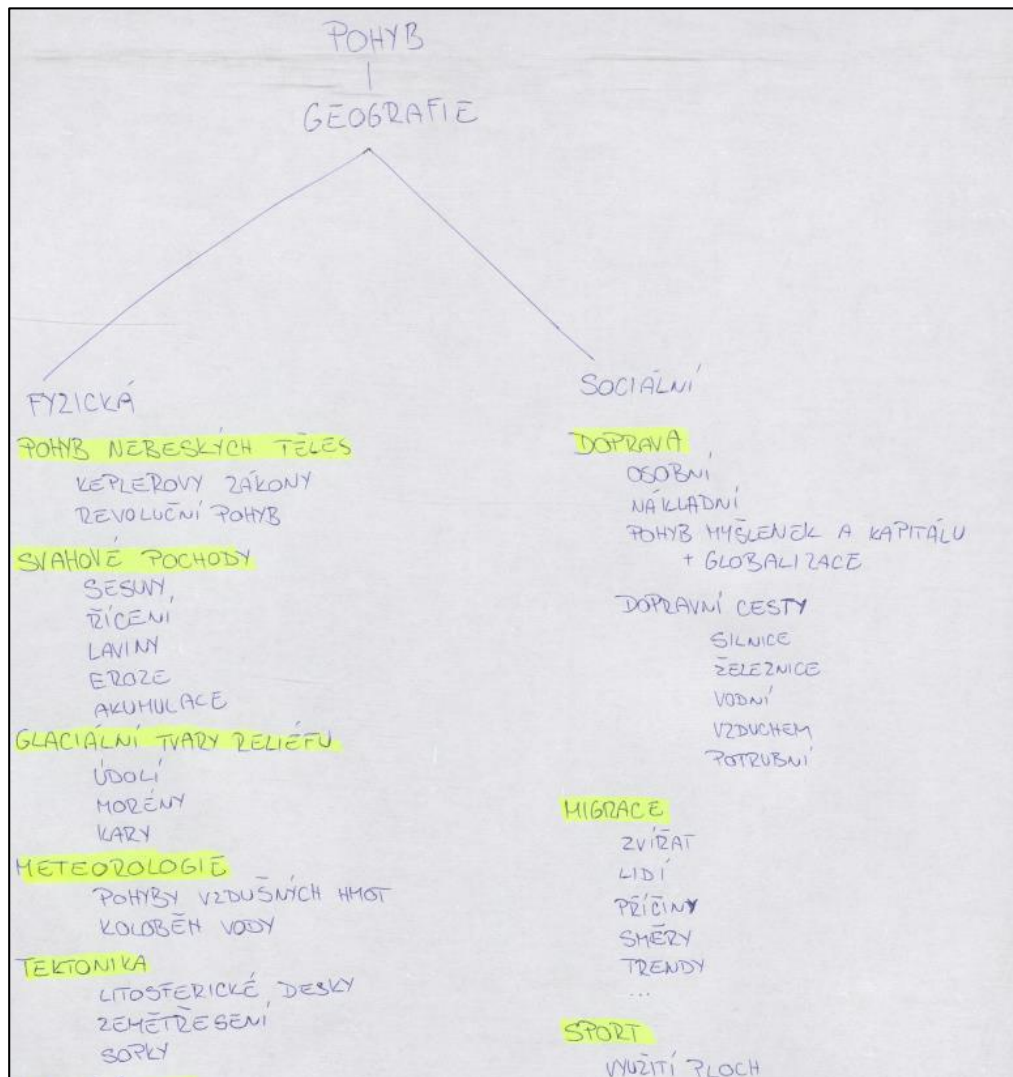 POHYB
GEOGRAFIE
FYZICKÁ
POHYB NEBESKÝCH TĚLES
KEPLEROVY ZÁKONY
REVOLUČNÍ POHYB
SVAHOVÉ POCHODY
SESUVY,
ŘÍCENÍ
LAVINY
EROZE
AKUMULACE
GLACIÁLNÍ TVARY RELIÉFU
ÚDOLÍ
MORÉNY
KARY
METEOROLOGIE
POHYBY VZDUŠNÝCH HMOT
KOLOBĚH VODY
TEKTONIKA
LITOSFERICKÉ DESKY
ZEMĚTŘESENÍ
SOPKY
SOCIÁLNÍ
DOPRAVA
OSOBNÍ
NÁKLADNÍ
POHYB MYŠLENEK A KAPITÁLU
+ GLOBALIZACE
DOPRAVNÍ CESTY
SILNICE
ŽELEZNICE
VODNÍ
VZDUCHEM
POTRUBNÍ
MIGRACE
ZVÍŘAT
LIDÍ
PŘÍČINY
SMĚRY
TRENDY
...
SPORT
VYUŽITÍ PLOCH